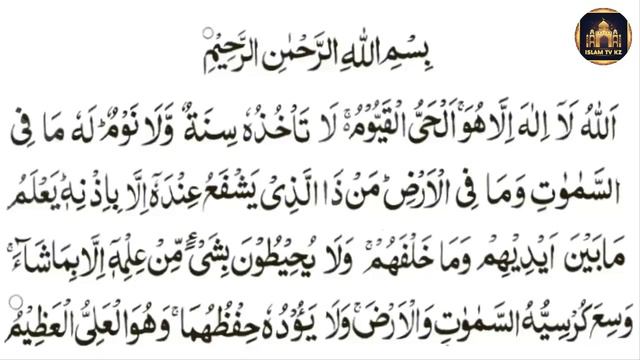 ISLAM TV KZ
بِسْمِ اللهِ الرَّحْمٰنِ الرَّحِيْمِ
اَللهُ لَآ اِلٰهَ اِلَّا هُوَ ۚ اَلْحَيُّ الْقَيُّوْمُ ۚ لَا تَاْخُذُهٗ سِنَةٌ وَّلَا نَوْمٌ ؕ لَهٗ مَا فِى
السَّمٰوٰتِ وَمَا فِى الْاَرْضِ ؕ مَنْ ذَا الَّذِىْ يَشْفَعُ عِنْدَهٗٓ اِلَّا بِاِذْنِهٖ ؕ يَعْلَمُ
مَا بَيْنَ اَيْدِيْهِمْ وَمَا خَلْفَهُمْ ۚ وَلَا يُحِيْطُوْنَ بِشَىْءٍ مِّنْ عِلْمِهٖٓ اِلَّا بِمَا شَآءَ ۚ
وَسِعَ كُرْسِيُّهُ السَّمٰوٰتِ وَالْاَرْضَ ۚ وَلَا يَـُٔوْدُهٗ حِفْظُهُمَا ۚ وَهُوَ الْعَلِىُّ الْعَظِيْمُ